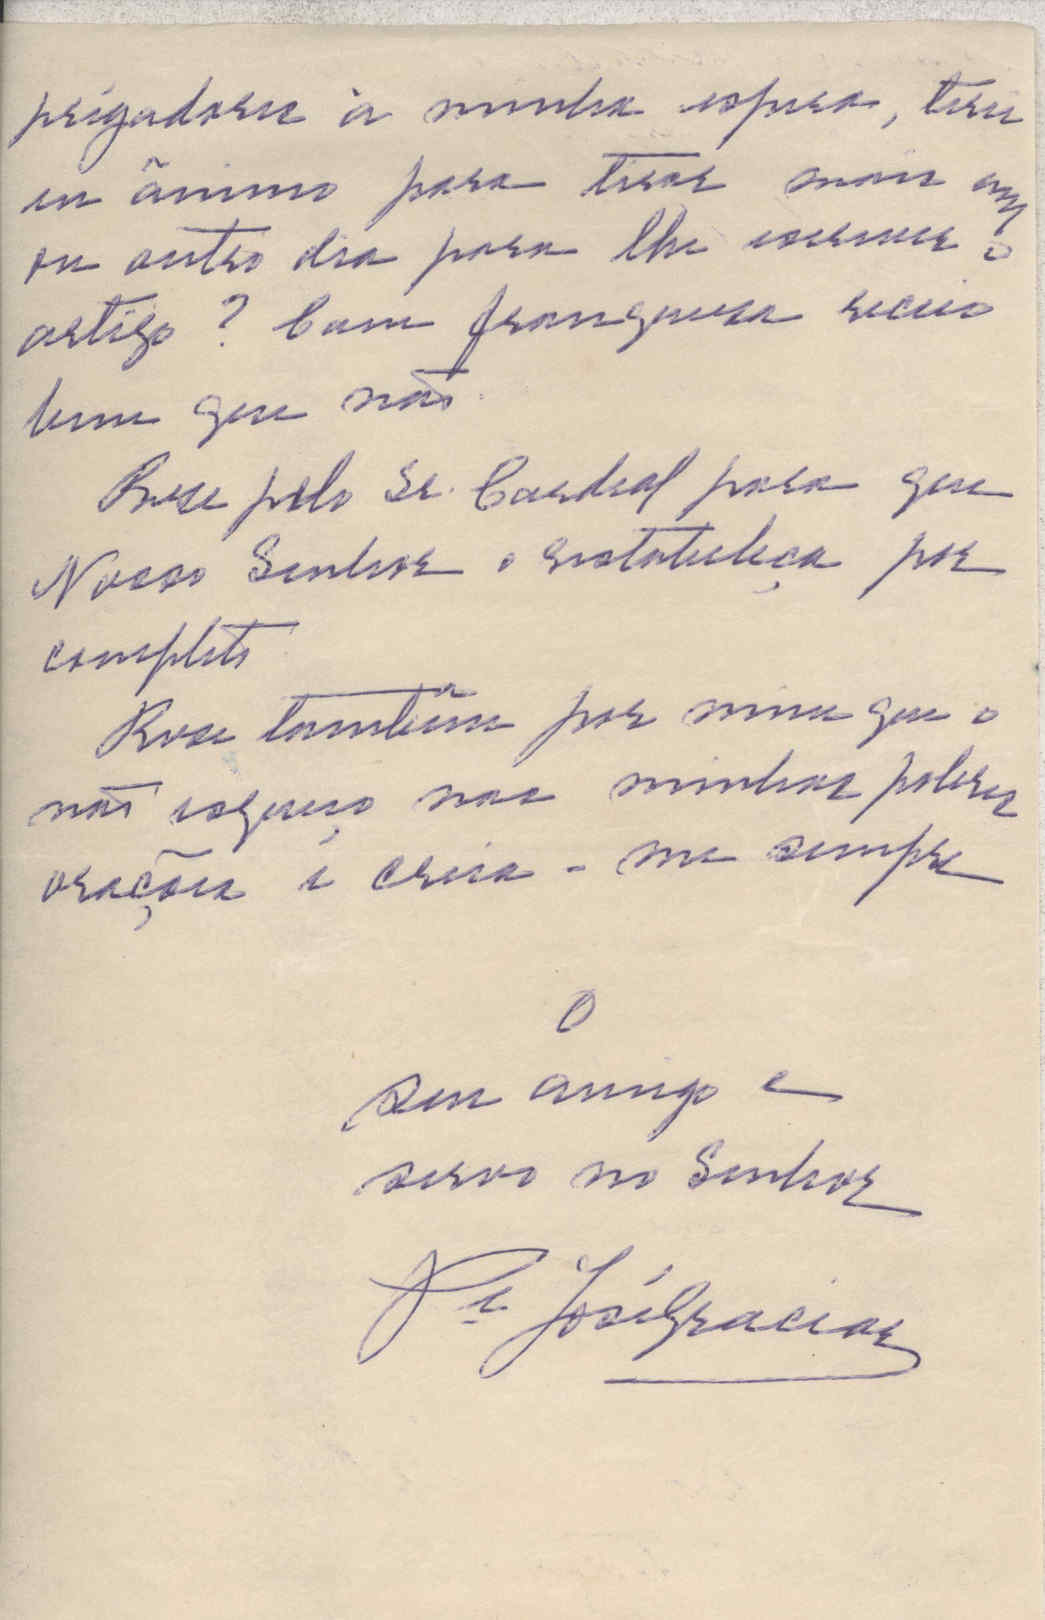 prègadores à minha espera, terei
eu ânimo para tirar mais um
ou outro dia para lhe escrever o
artigo? Com franqueza receio
bem que não.
Rese pelo Sr. Cardeal para que
Nosso Senhor o restabeleça por
completo
Rese também por mim que o
não esqueço nas minhas pobres
orações e creia-me sempre
O
seu amigo e
servo no Senhor
Pe José Gracias